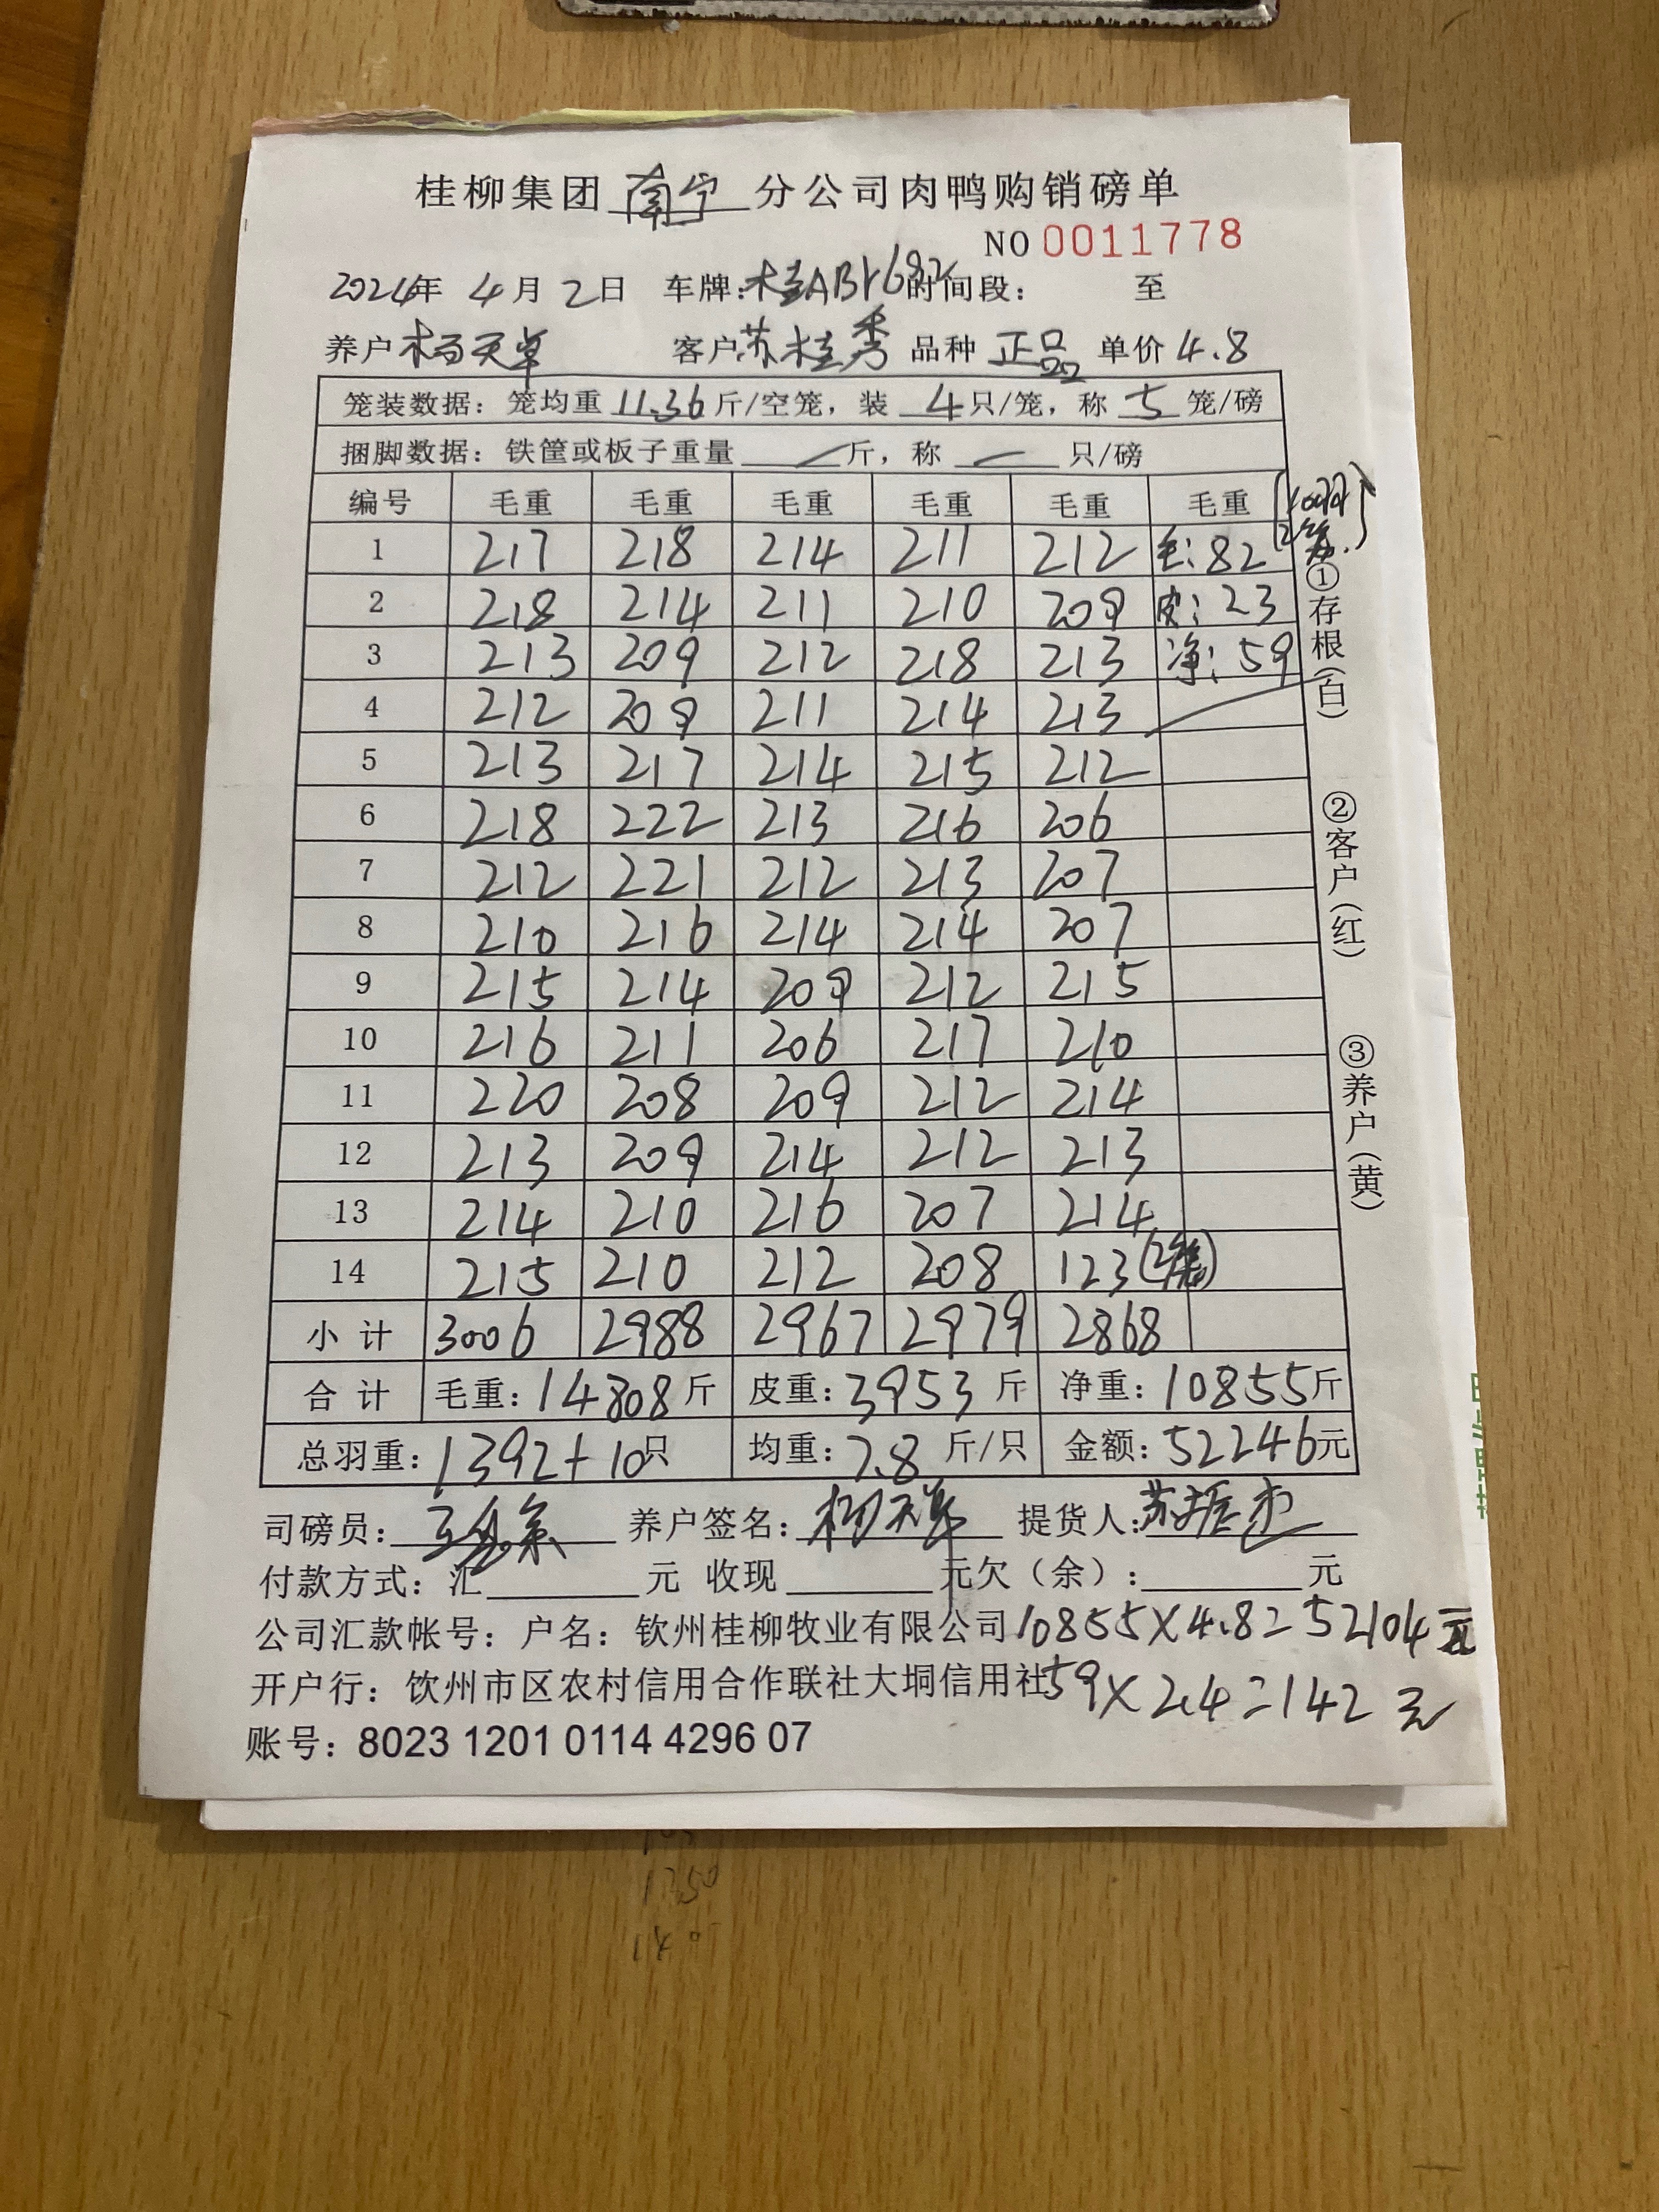 桂柳集团 南宁 分公司肉鸭购销磅单
NO 0011778
2024年 4月 2日 车牌: 桂ABY682 时间段: 至
养户 杨天 客户 苏桂秀 品种 正品 单价 4.8
笼装数据: 笼均重 11.36 斤/空笼, 装 4 只/笼, 称 5 笼/磅
捆脚数据: 铁筐或板子重量 斤, 称 只/磅
编号 毛重 毛重 毛重 毛重 毛重 毛重
1 217 218 214 211 212 毛: 82
2 218 214 211 210 209 皮: 23
3 213 209 212 218 213 净: 59
4 212 209 211 214 213
5 213 217 214 215 212
6 218 222 213 216 206
7 212 221 212 213 207
8 210 216 214 214 207
9 215 214 209 212 215
10 216 211 206 217 210
11 220 208 209 212 214
12 213 209 214 212 213
13 214 210 216 207 214
14 215 210 212 208 123
小计 3006 2988 2967 2979 2868
合计 毛重: 14808 斤 皮重: 3953 斤 净重: 10855 斤
总羽重: 1392+10只 均重: 7.8 斤/只 金额: 52246元
司磅员: 养户签名: 提货人: 苏
付款方式: 汇 元 收现 元欠(余): 元
公司汇款帐号: 户名: 钦州桂柳牧业有限公司 10855×4.8=52104元
开户行: 钦州市区农村信用合作联社大垌信用社 59×2.4=142元
账号: 8023 1201 0114 4296 07
①存根(白)
②客户(红)
③养户(黄)
1250